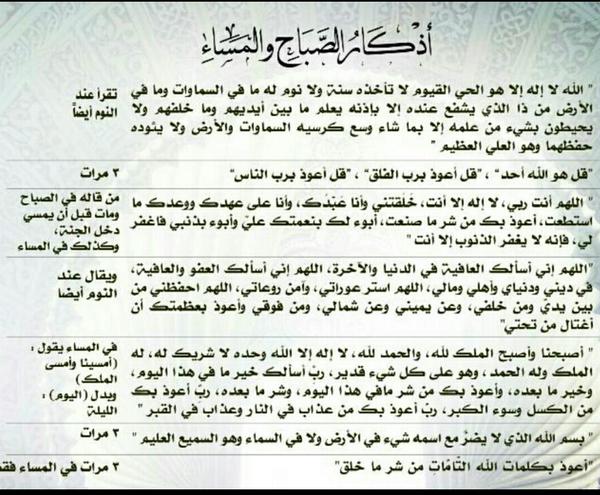 أذكار الصباح والمساء
" الله لا إله إلا هو الحي القيوم لا تأخذه سنة ولا نوم له ما في السماوات وما في
الأرض من ذا الذي يشفع عنده إلا بإذنه يعلم ما بين أيديهم وما خلفهم ولا
يحيطون بشيء من علمه إلا بما شاء وسع كرسيه السماوات والأرض ولا يئوده
حفظهما وهو العلي العظيم "
تقرأ عند
النوم أيضاً
"قل هو الله أحد" ، "قل أعوذ برب الفلق" ، "قل أعوذ برب الناس"
٣ مرات
" اللهم أنت ربي، لا إله إلا أنت، خَلَقتني وأنا عَبْدُك، وأنا على عهدك ووعدك ما
استطعت، أعوذ بك من شر ما صنعت، أبوء لك بنعمتك عليّ وأبوء بذنبي فاغفر
لي، فإنه لا يغفر الذنوب إلا أنت "
من قاله في الصباح
ومات قبل أن يمسي
دخل الجنة،
وكذلك في المساء
"اللهم إني أسألك العافية في الدنيا والآخرة، اللهم إني أسألك العفو والعافية،
في ديني ودنياي وأهلي ومالي، اللهم استر عوراتي، وآمن روعاتي، اللهم احفظني من
بين يديّ ومن خلفي، وعن يميني وعن شمالي، ومن فوقي وأعوذ بعظمتك أن
أغتال من تحتي"
ويقال عند
النوم أيضاً
" أصبحنا وأصبح الملك لله، والحمد لله، لا إله إلا الله وحده لا شريك له، له
الملك وله الحمد، وهو على كل شيء قدير، ربّ أسألك خير ما في هذا اليوم،
وخير ما بعده، وأعوذ بك من شر مافي هذا اليوم، وشر ما بعده، ربّ أعوذ بك
من الكسل وسوء الكبر، ربّ أعوذ بك من عذاب في النار وعذاب في القبر "
في المساء يقول :
(أمسينا وأمسى
الملك)
ويدل (اليوم) :
الليلة
" بسم الله الذي لا يضرّ مع اسمه شيء في الأرض ولا في السماء وهو السميع العليم "
٣ مرات
"أعوذ بكلمات الله التَّامَّاتِ من شر ما خلق"
٣ مرات في المساء فقط